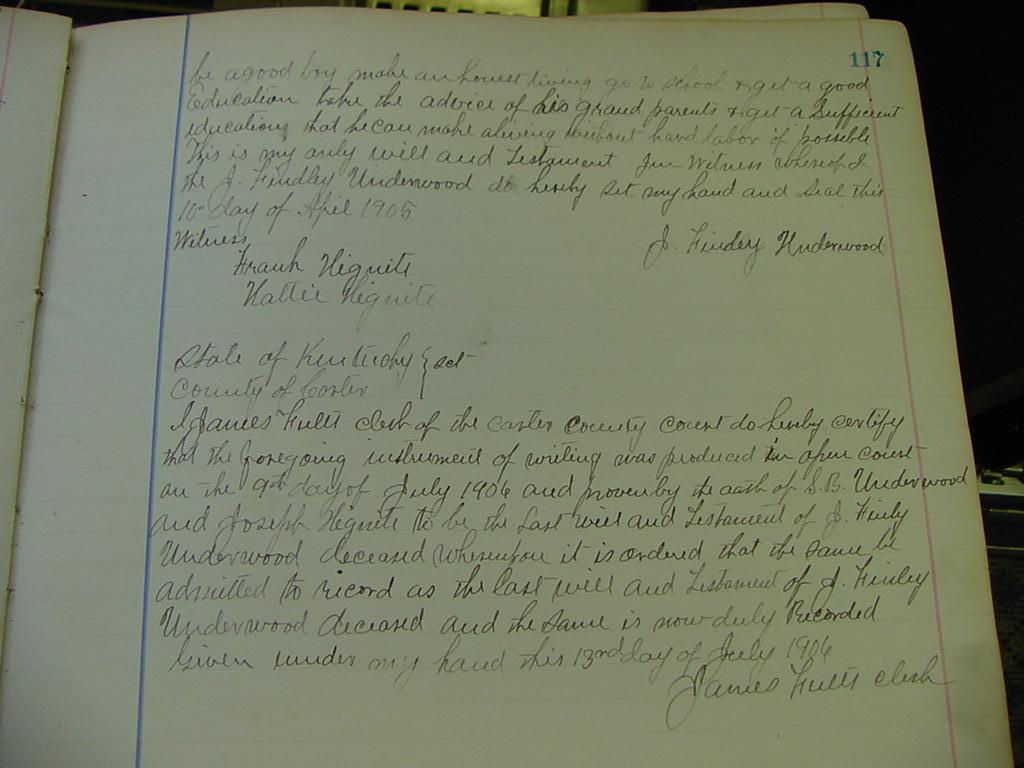 117
be a good boy make an honest living go to school & get a good
Education take the advice of his grand parents & get a Sufficient
education that he can make a living without hard labor if possible
This is my only will and Testament In Witness whereof I
the J. Findley Underwood do hereby set my hand and Seal this
10" day of April 1905
J. Finley Underwood
Witness
Frank Hignite
Hattie Hignite
State of Kentucky } sct
County of Carter
I James Fults clerk of the carter county court do hereby certify
that the foregoing instrument of writing was produced in open court
on the 9th day of July 1906 and proven by the oath of S.B. Underwood
and Joseph Hignite to be the Last will and Testament of J. Finly
Underwood deceased whereupon it is ordered that the same be
admitted to record as the last will and Testament of J. Finley
Underwood deceased and the same is now duly Recorded
Given under my hand this 13rd day of July 1906
James Fults clerk